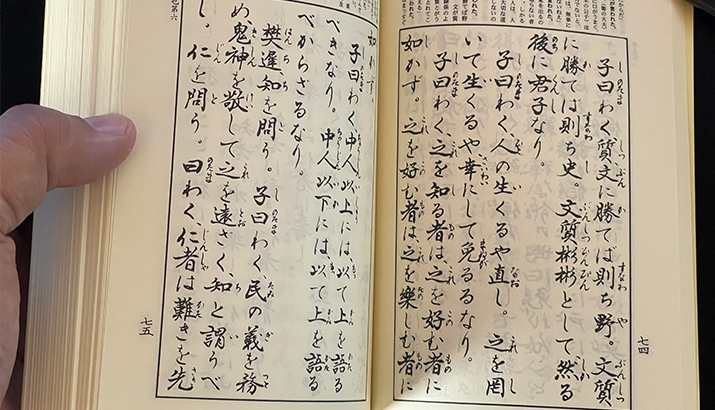 子曰わく質文に勝てば則ち野。文質
に勝てば則ち史。文質彬彬として然る
後に君子なり。
子曰わく、人の生くるや直し。之を罔
いて生くるや幸にして免るるなり。
子曰わく、之を知る者は、之を好む者に
如かず。之を好む者は、之を樂しむ者に
七四
如かず。
子曰わく中人以上には、以て上を語る
べきなり。中人以下には、以て上を語る
べからざるなり。
樊遅知を問う。子曰わく、民の義を務
め鬼神を敬して之を遠ざく、知と謂うべ
し。仁を問う。曰わく、仁者は難きを先
七五